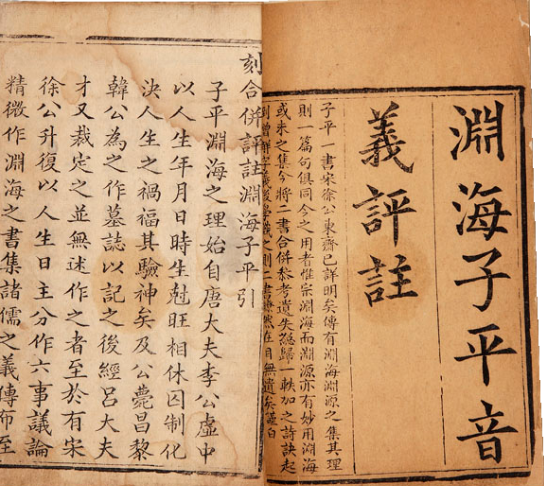 淵海子平音
義評註
子平一書宋徐公東齋已詳明矣傳有淵海淵源之集其理
則一篇句俱同今之用者惟宗淵海而淵源亦有妙用淵海
或未之集今將二書合併叅考遺失總歸一帙加之詩訣起
刻合併評註淵海子平引
子平淵海之理始自唐大夫李公虛中
以人生年月日時生尅旺相休囚制化
决人生之禍福其驗神矣及公薨昌黎
韓公為之作墓誌以記之後經呂大夫
才又裁定之並無述作之者至於有宋
徐公升復以人生日主分作六事議論
精微作淵海之書集諸儒之義傳布至